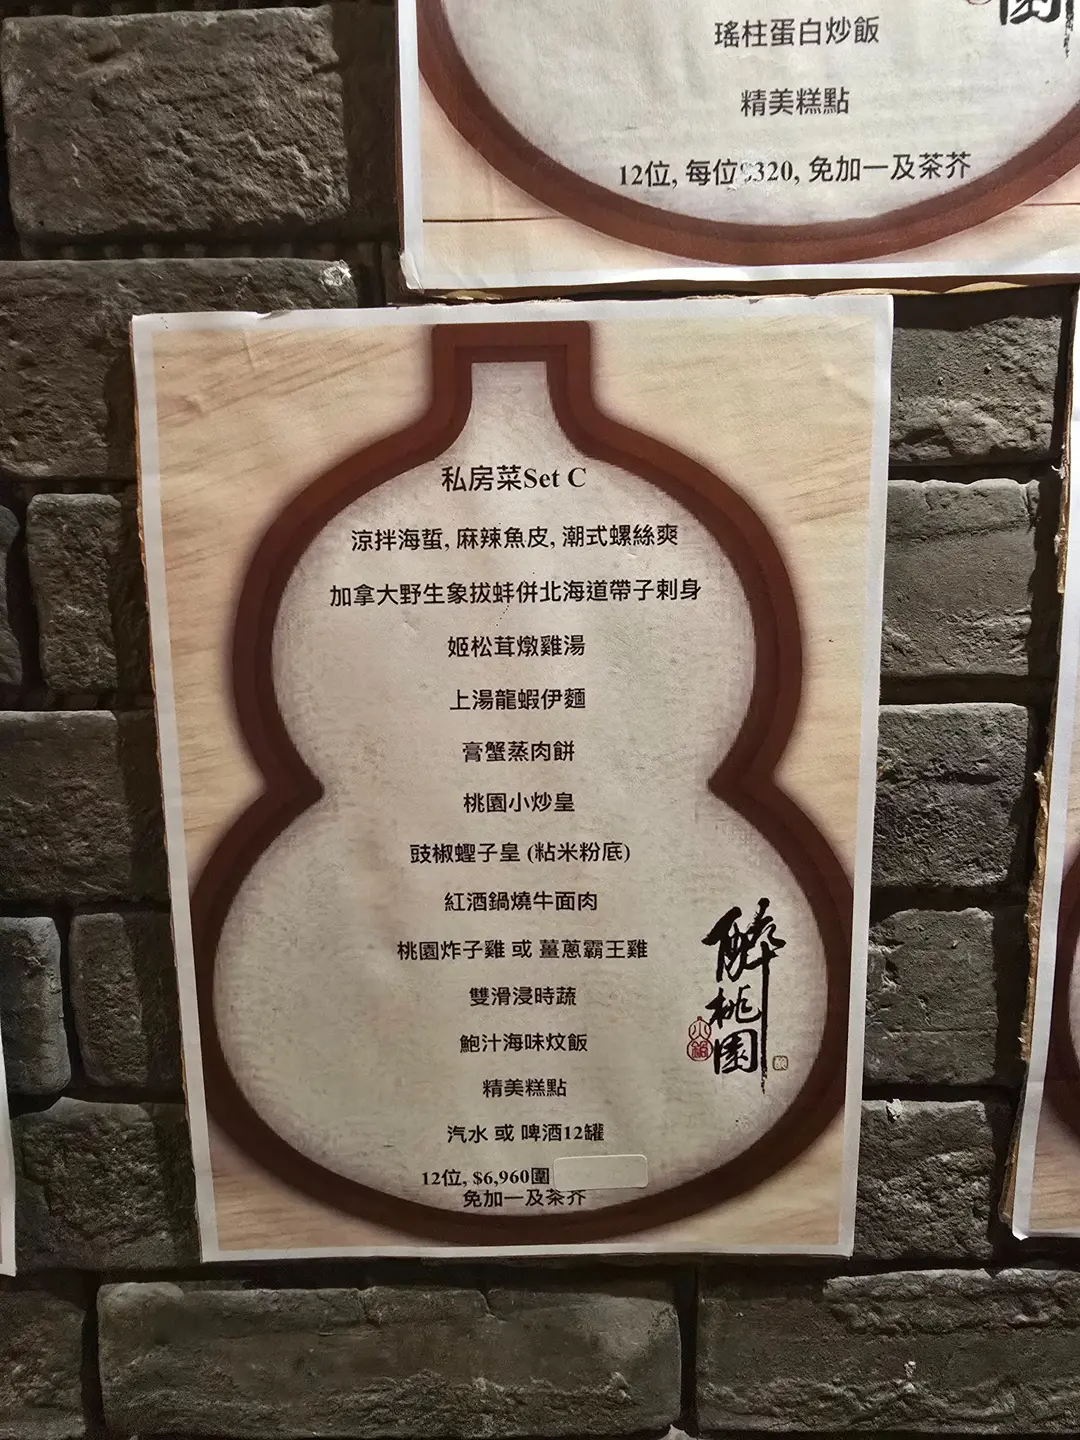 瑤柱蛋白炒飯
精美糕點
12位, 每位$320, 免加一及茶芥
私房菜Set C
涼拌海蜇, 麻辣魚皮, 潮式螺絲爽
加拿大野生象拔蚌併北海道帶子刺身
姬松茸燉雞湯
上湯龍蝦伊麵
膏蟹蒸肉餅
桃園小炒皇
豉椒蟶子皇 (粘米粉底)
紅酒鍋燒牛面肉
桃園炸子雞 或 薑蔥霸王雞
雙滑浸時蔬
鮑汁海味炆飯
精美糕點
汽水 或 啤酒12罐
12位, $6,960圍
免加一及茶芥
醉桃園
火鍋